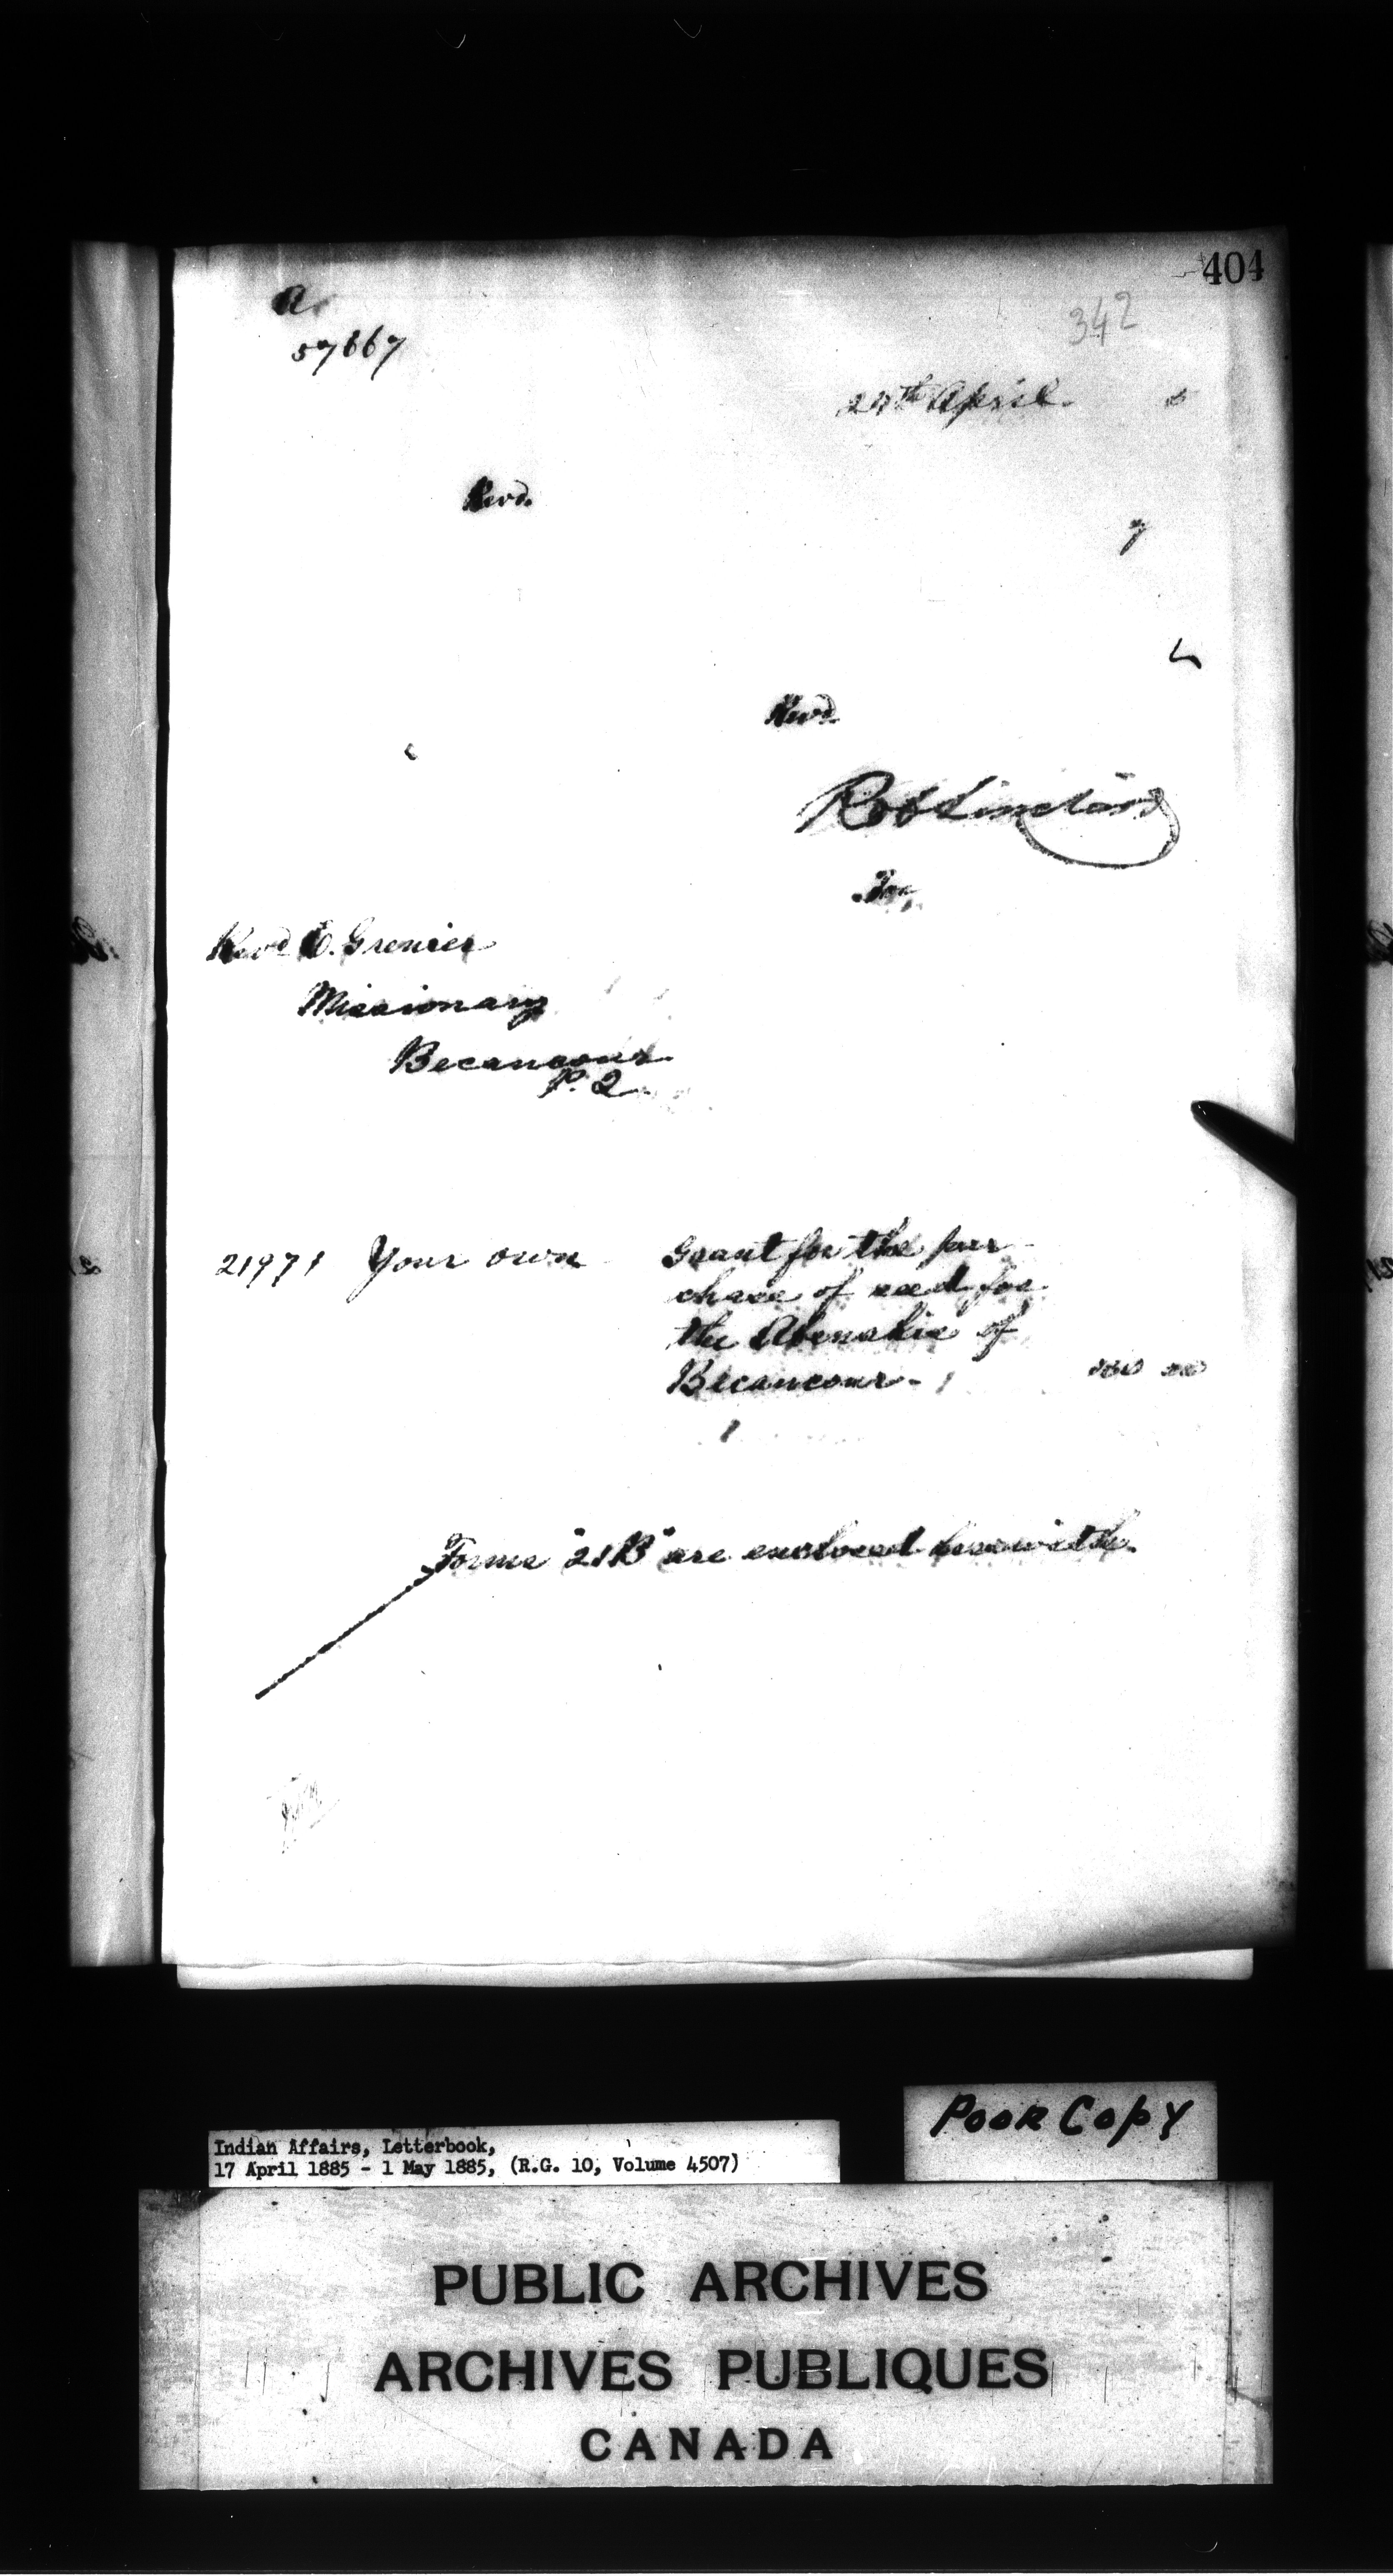 404
342
a
57667
27th April 5
Revd.
Revd.
Rob Sinclair
For,
Revd E. Grenier
Missionary
Becancour
P. Q.
21971 Your own Grant for the pur-
chase of seed for
the Abenakis of
Becancour -
Forms "21B" are enclosed herewith.
Poor Copy
Indian Affairs, Letterbook,
17 April 1885 - 1 May 1885, (R.G. 10, Volume 4507)
PUBLIC ARCHIVES
ARCHIVES PUBLIQUES
CANADA